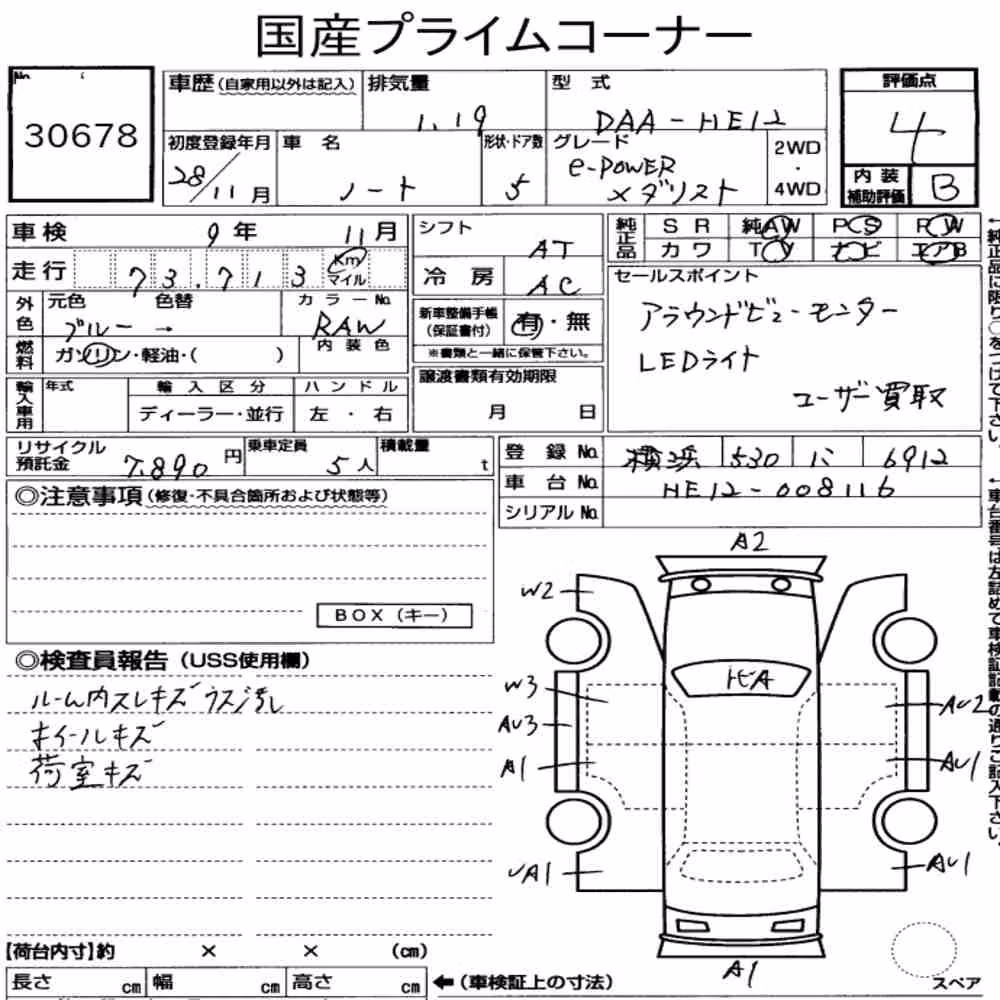 国産プライムコーナー
No.
30678
車歴(自家用以外は記入)
排気量
1.19
型 式
DAA-HE12
評価点
4
内装補助評価
B
初度登録年月
28/11月
車 名
ノート
形状・ドア数
5
グレード
e-POWER
メダリスト
2WD
・
4WD
車検 9年 11月
走行 73.713 Km マイル
外色
元色 色替
ブルー →
カラーNo.
RAW
燃料
ガソリン・軽油・( )
内装色
輸入車用
年式
輸入区分
ディーラー・並行
ハンドル
左 ・ 右
シフト
AT
冷房
AC
新車整備手帳
(保証書付)
有・無
※書類と一緒に保管下さい。
譲渡書類有効期限
月 日
純正品
SR 純AW PS PW
カワ TV ナビ エアB
セールスポイント
アラウンドビューモニター
LEDライト
ユーザー買取
リサイクル預託金
7.890円
乗車定員
5人
積載量
t
登 録 No. 横浜 530 に 6912
車 台 No. HE12-008116
シリアルNo.
◎注意事項(修復・不具合箇所および状態等)
BOX(キー)
◎検査員報告(USS使用欄)
ルーム内スレキズ ウス汚し
ホイールキズ
荷室キズ
A2
W2
トビA
W3
AU3
A1
AU2
AU1
UA1
AU1
A1
スペア
【荷台内寸】約 × × (cm)
長さ cm 幅 cm 高さ cm
←(車検証上の寸法)
←純正品に限り○をつけて下さい。
←車台番号は左詰めで車検証記載の通りご記入下さい。